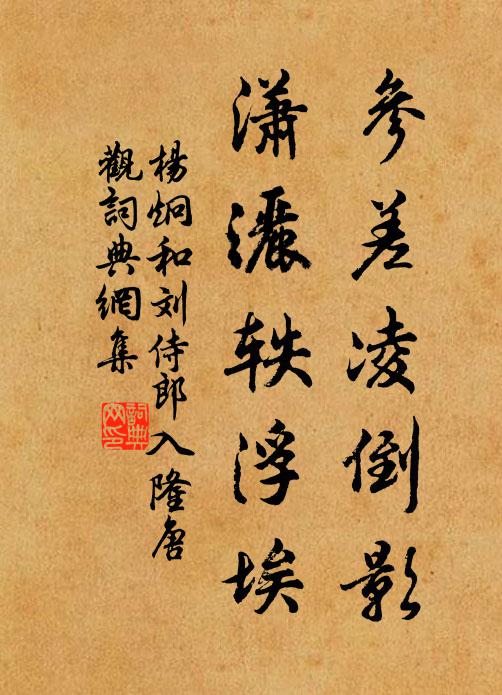 參差凌倒影
瀟灑轶浮埃
楊炯和刘侍郎入隆唐
觀詞典網集
詞典
网印